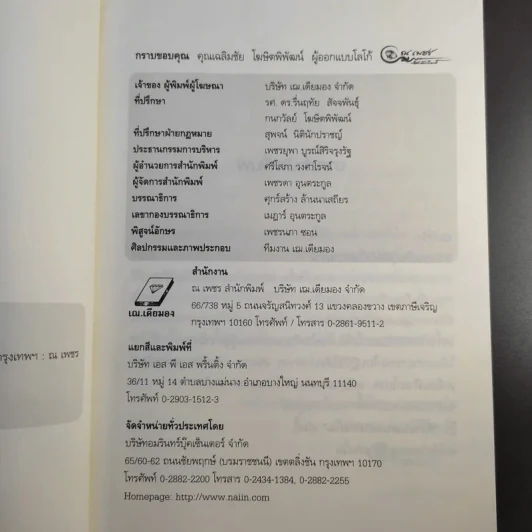 กราบขอบคุณ คุณเฉลิมชัย โฆษิตพิพัฒน์ ผู้ออกแบบโลโก้ ณ เพชร
เจ้าของ ผู้พิมพ์ผู้โฆษณา บริษัท เฌ.เดียมอง จำกัด
ที่ปรึกษา รศ. ดร.รื่นฤทัย สัจจพันธุ์
กนกวัลย์ โฆษิตพิพัฒน์
ที่ปรึกษาฝ่ายกฎหมาย สุพจน์ นิตินักปราชญ์
ประธานกรรมการบริหาร เพชรยุพา บูรณ์สิริจรุงรัฐ
ผู้อำนวยการสำนักพิมพ์ ศรีโสภา วงศาโรจน์
ผู้จัดการสำนักพิมพ์ เพชรดา อุนตระกูล
บรรณาธิการ ศุกร์สร้าง ล้านนาเสถียร
เลขากองบรรณาธิการ เมฎาร์ อุนตระกูล
พิสูจน์อักษร เพชรนภา ซอน
ศิลปกรรมและภาพประกอบ ทีมงาน เฌ.เดียมอง
สำนักงาน
ณ เพชร สำนักพิมพ์ บริษัท เฌ.เดียมอง จำกัด
66/738 หมู่ 5 ถนนจรัญสนิทวงศ์ 13 แขวงคลองขวาง เขตภาษีเจริญ
กรุงเทพฯ 10160 โทรศัพท์ / โทรสาร 0-2861-9511-2
เฌ.เดียมอง
กรุงเทพฯ : ณ เพชร
แยกสีและพิมพ์ที่
บริษัท เอส พี เอส พริ้นติ้ง จำกัด
36/11 หมู่ 14 ตำบลบางแม่นาง อำเภอบางใหญ่ นนทบุรี 11140
โทรศัพท์ 0-2903-1512-3
จัดจำหน่ายทั่วประเทศโดย
บริษัทอมรินทร์บุ๊คเซ็นเตอร์ จำกัด
65/60-62 ถนนชัยพฤกษ์ (บรมราชชนนี) เขตตลิ่งชัน กรุงเทพฯ 10170
โทรศัพท์ 0-2882-2200 โทรสาร 0-2434-1384, 0-2882-2255
Homepage: http://www.naiin.com